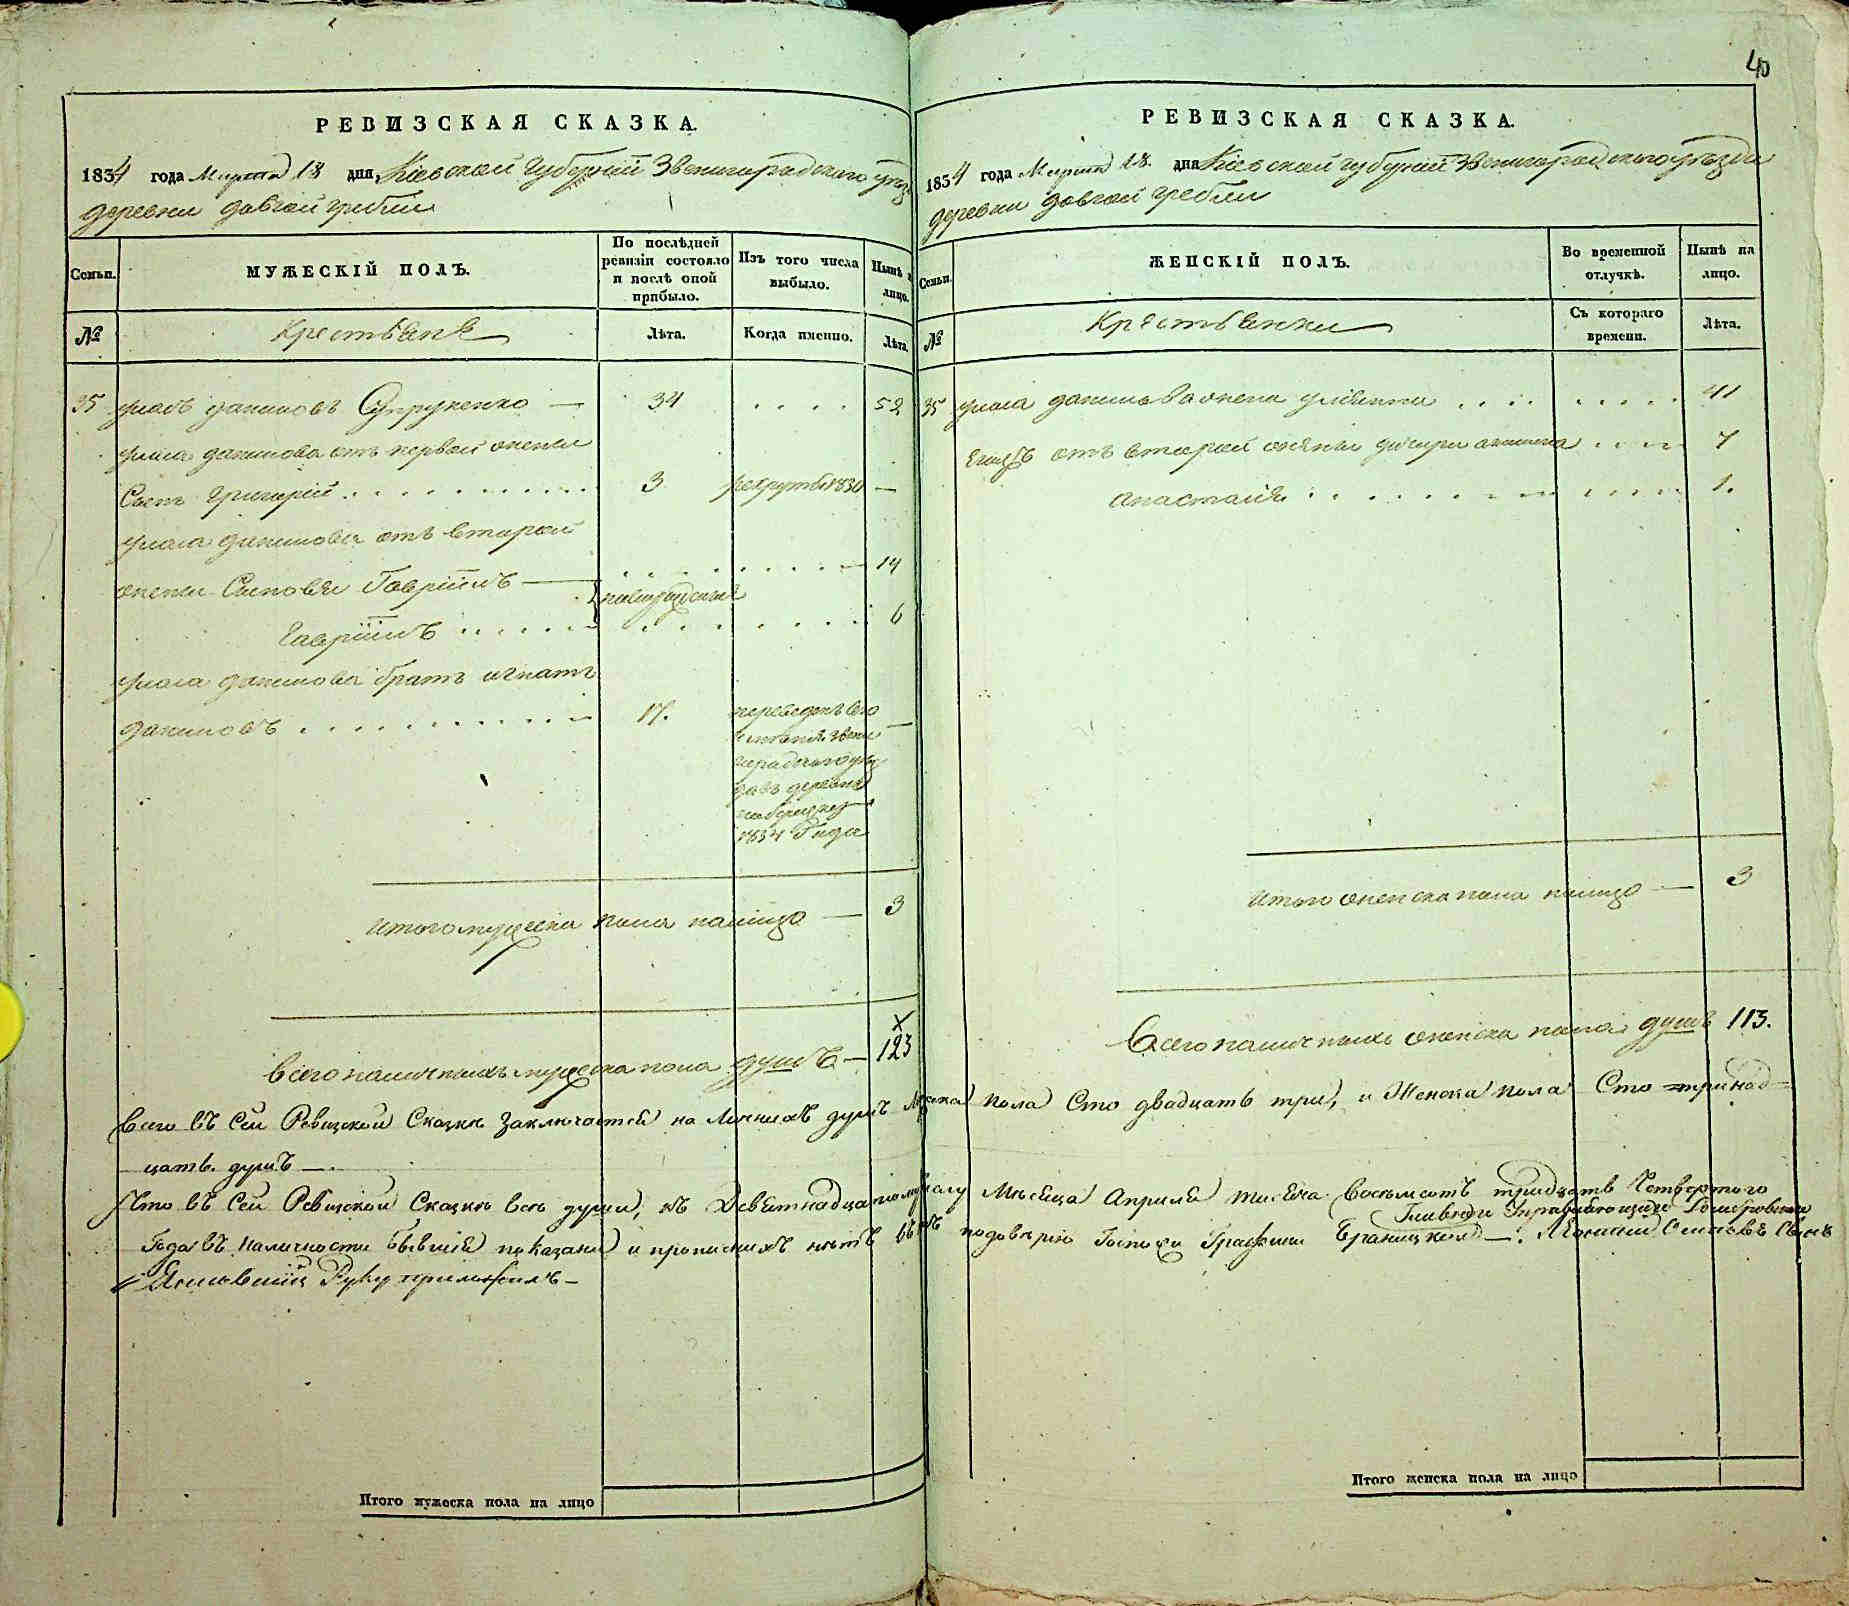 РЕВИЗСКАЯ СКАЗКА.
1834 года Марта 18 дня, Кіевской Губерніи Звенигородского уезда
деревни довгой гребли
Семьи.
МУЖЕСКІЙ ПОЛЪ.
По послѣдней ревизіи состояло и послѣ оной прибыло.
Изъ того числа выбыло.
Нынѣ на лицо.
№
Крестьяне
Лѣта.
Когда именно.
Лѣта.
35 даниловъ Супруненко — 34 . . . . 52
данилова отъ первой жены
Сынъ Григорій . . . . . . . . . 3 рекрутъ 1830 —
данилова отъ второй
жены Сыновья Гавріилъ — . . . . . . . 14
новорожденные
Гавріилъ . . . . . . . . . . . 6
данилова братъ игнатъ
даниловъ . . . . . . . . . 17. переведенъ —
деревню
1834 Года
итого мужеска пола налицо — 3
Всего наличныхъ мужеска пола душъ — 123
РЕВИЗСКАЯ СКАЗКА.
40
1834 года Марта 18. дня Кіевской губерніи Звенигородского уезда
деревни довгой гребли
Семьи.
ЖЕНСКІЙ ПОЛЪ.
Во временной отлучкѣ.
Нынѣ на лицо.
№
Крестьянки
Съ котораго времени.
Лѣта.
35 данилова жена . . . . . . . . . 41
Егожъ отъ второй жены дочери . . . . 7
анастасія . . . . . . . . . . . . 1.
итого женска пола налицо — 3
Всего наличныхъ женска пола душъ 113.
Всего въ Сей Ревизской Сказкѣ заключается на Личныхъ душъ Мужска пола Сто двадцать три, и Женска пола Сто тринад-
цать душъ —.
Что въ Сей Ревизской Сказкѣ всѣ души, къ Девятнадцатому Мѣсяца Апреля тысяча восемьсотъ тридцать Четвертого
Года въ наличности бывшіе показаны и прописныхъ нѣтъ въ томъ по довѣрію Госпожи Графини Браницкой —.
Руку приложилъ —
Итого мужеска пола на лицо
Итого женска пола на лицо